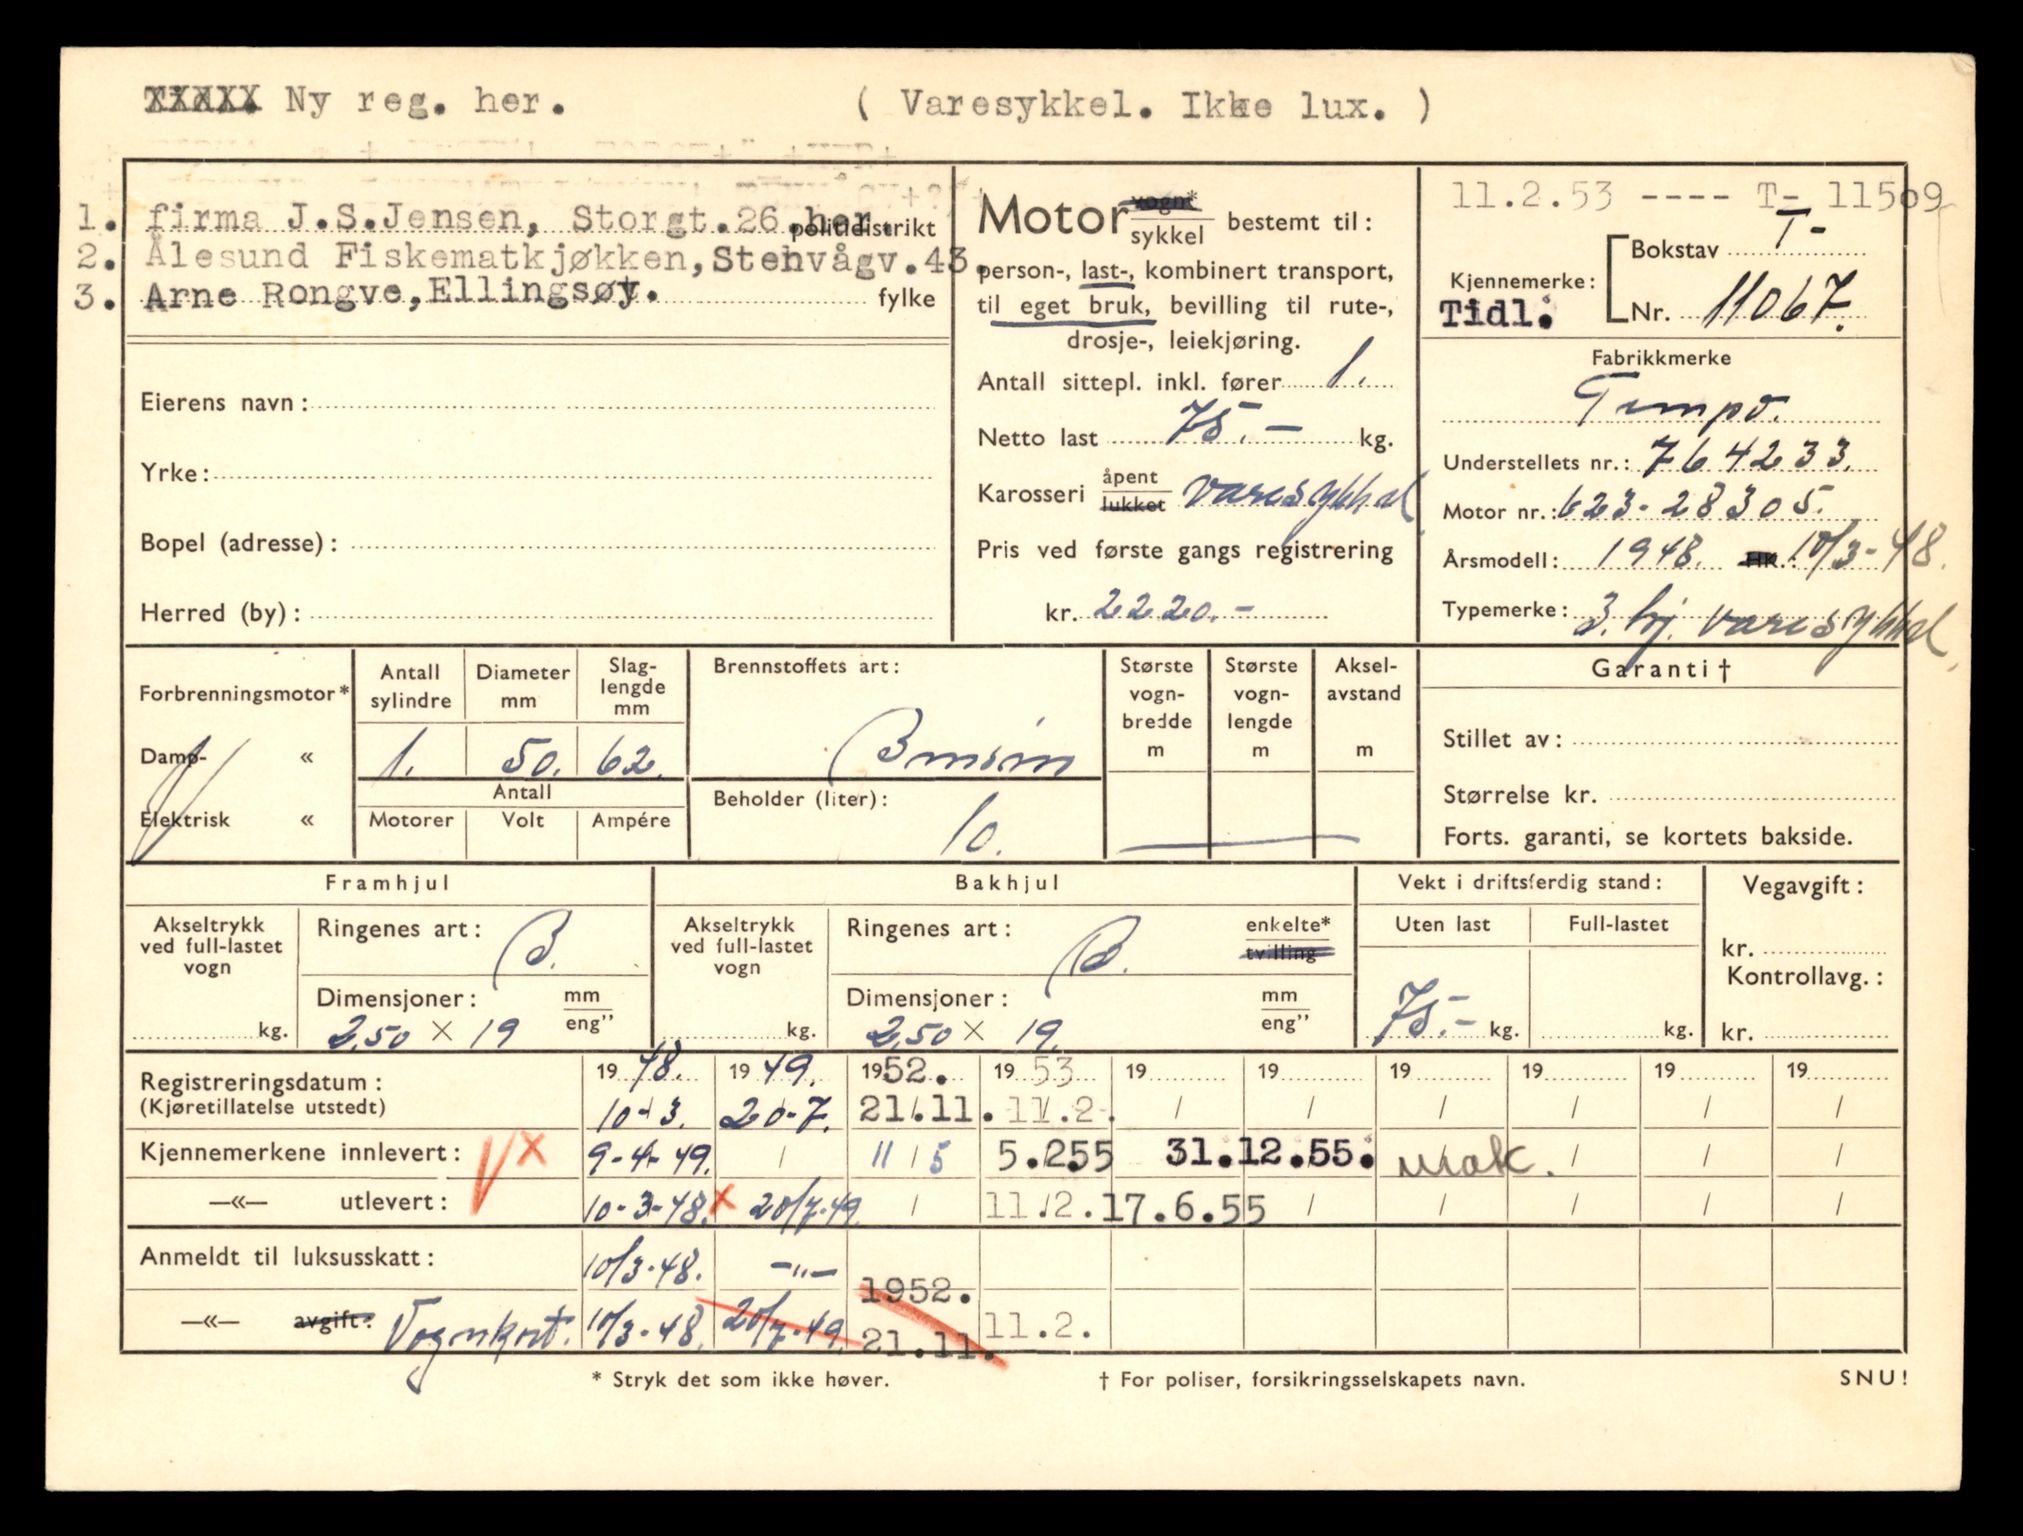 Ny reg. her. ( Varesykkel. Ikke lux. )
1. firma J.S.Jensen, Storgt.26.her. politidistrikt
2. Ålesund Fiskematkjøkken,Stenvågv.43.
3. Arne Rongve,Ellingsøy. fylke
Eierens navn:
Yrke:
Bopel (adresse):
Herred (by):
Motor vogn* sykkel bestemt til:
person-, last-, kombinert transport,
til eget bruk, bevilling til rute-,
drosje-, leiekjøring.
Antall sittepl. inkl. fører 1.
Netto last 75.- kg.
Karosseri åpent lukket varesykkel
Pris ved første gangs registrering
kr. 2220.-
11.2.53 ---- T- 11509
Bokstav T-
Kjennemerke:
Tidl: Nr. 11067.
Fabrikkmerke
Tempo.
Understellets nr.: 764233.
Motor nr.: 623-28305.
Årsmodell: 1948. HK.: 10/3-48.
Typemerke: 3.hj. varesykkel.
Forbrenningsmotor*
Damp- «
Elektrisk «
Antall sylindre Diameter mm Slag-lengde mm
1. 50. 62.
Antall
Motorer Volt Ampére
Brennstoffets art:
Bensin
Beholder (liter):
10.
Største vogn-bredde m Største vogn-lengde m Aksel-avstand m
Garanti†
Stillet av:
Størrelse kr.
Forts. garanti, se kortets bakside.
Framhjul
Akseltrykk ved full-lastet vogn
kg.
Ringenes art: B.
Dimensjoner: mm eng”
2,50 × 19
Bakhjul
Akseltrykk ved full-lastet vogn
kg.
Ringenes art: B. enkelte* tvilling
Dimensjoner: mm eng”
2,50 × 19.
Vekt i driftsferdig stand:
Uten last Full-lastet
75.- kg. kg.
Vegavgift:
kr.
Kontrollavg.:
kr.
Registreringsdatum: 19 48. 19 49. 1952. 19 53 19 19 19 19 19 19
(Kjøretillatelse utstedt) 10-3. 20-7. 21.11. 11.2. / / / / / /
Kjennemerkene innlevert: V x 9-4-49. / 11/5 5.255 31.12.55. vrak. / / /
—«— utlevert: 10-3-48. x 20/7-49. / 11.2. 17.6.55 / / / / /
Anmeldt til luksusskatt: 10/3-48. -"-
—«— avgift: Vognkort. 10/3-48. 20/7-49. 1952. 21.11. 11.2.
* Stryk det som ikke høver. † For poliser, forsikringsselskapets navn. SNU!